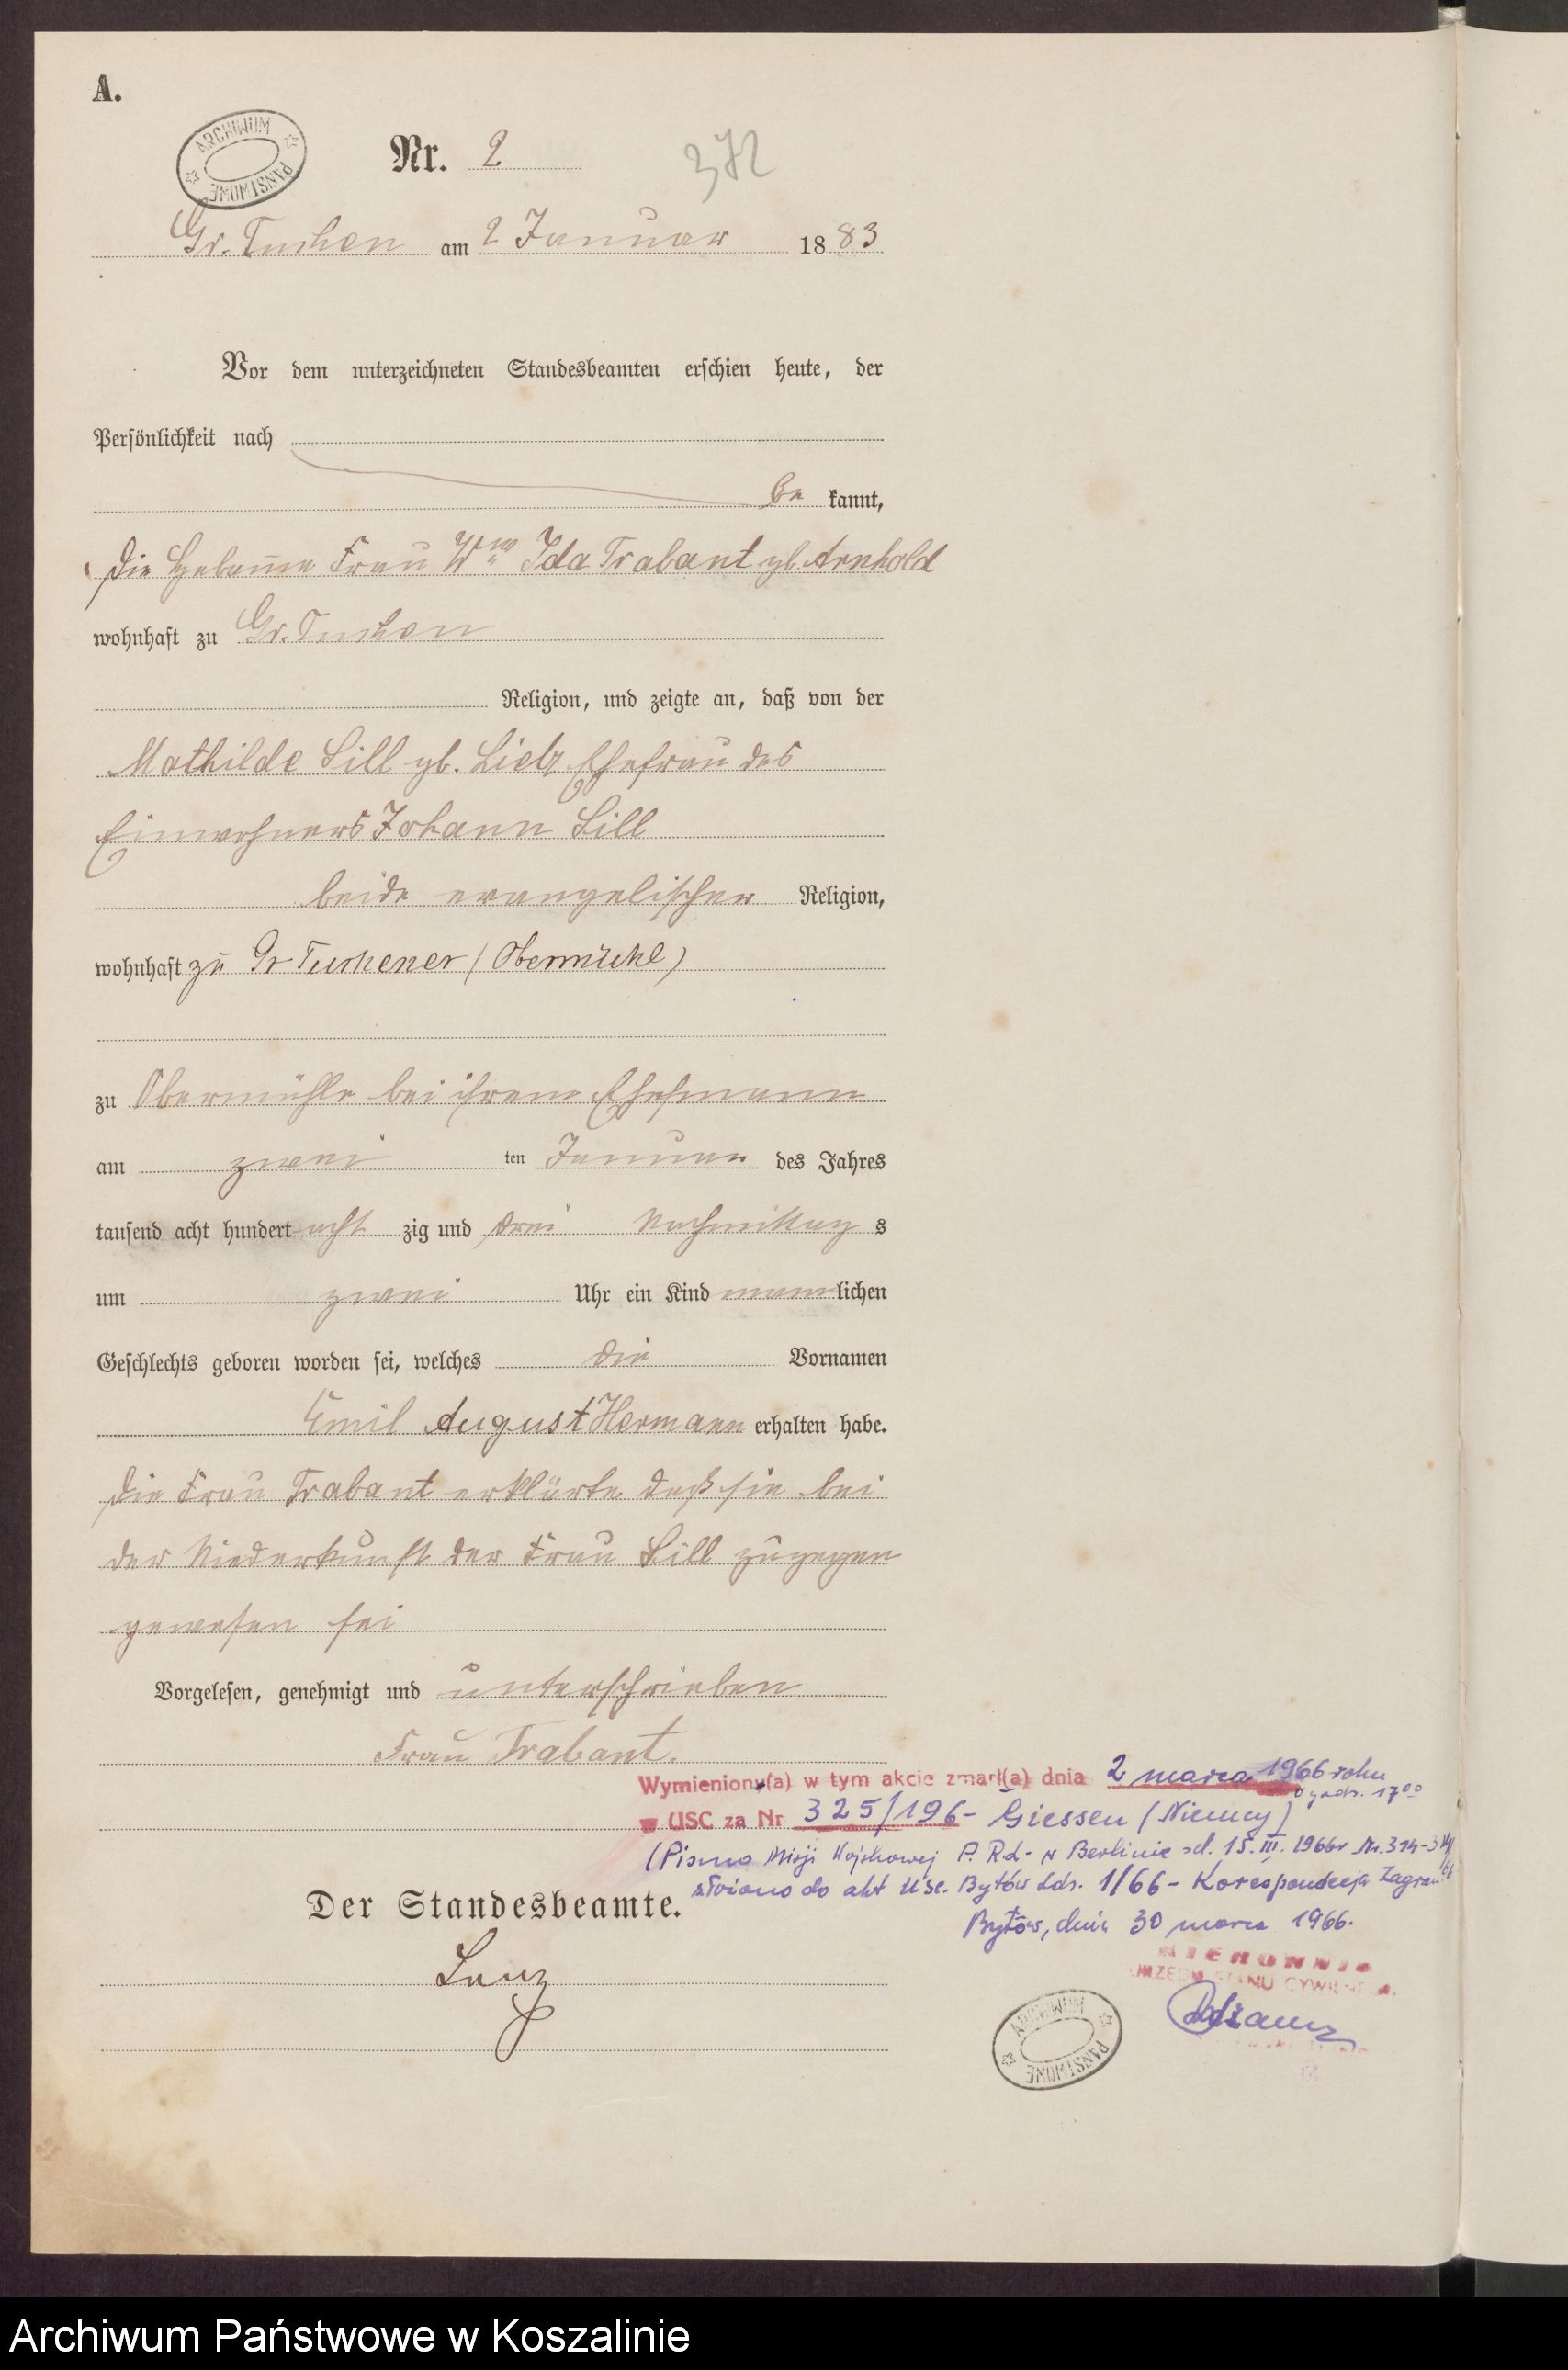 A.
ARCHIWUM PAŃSTWOWE
Nr. 2
372
Gr. Tuchen am 2 Januar 1883
Vor dem unterzeichneten Standesbeamten erschien heute, der
Persönlichkeit nach
be kannt,
die Hebamme Frau Wwe Ida Trabant gb. Arnhold
wohnhaft zu Gr. Tuchen
Religion, und zeigte an, daß von der
Mathilde Sill gb. Lietz Ehefrau des
Einwohners Johann Sill
beide evangelischer Religion,
wohnhaft zu Gr Tuchener (Obermühl)
zu Obermühle bei ihrem Ehehmann
am zwei ten Januar des Jahres
tausend acht hundert acht zig und drei Nachmittag s
um zwei Uhr ein Kind mannlichen
Geschlechts geboren worden sei, welches die Vornamen
Emil August Hermann erhalten habe.
die Frau Trabant erklärte daß sie bei
der Niederkunft der Frau Sill zugegen
gewesen sei
Vorgelesen, genehmigt und unterschrieben
Frau Trabant.
Wymieniony(a) w tym akcie zmarł(a) dnia 2 marca 1966 roku
o godz. 17⁰⁰
w USC za Nr 325/196- Giessen (Niemcy)
(Pismo Misji Wojskowej P.R.L. w Berlinie z d. 15.III.1966r Nr. 314-
złożono do akt USC. Bytów Lds. 1/66 - Korespondecja Zagran
Der Standesbeamte.
Bytów, dnia 30 marca 1966.
KIEROWNIK
URZĘDU STANU CYWILNEGO
Lenz
ARCHIWUM PAŃSTWOWE
Archiwum Państwowe w Koszalinie